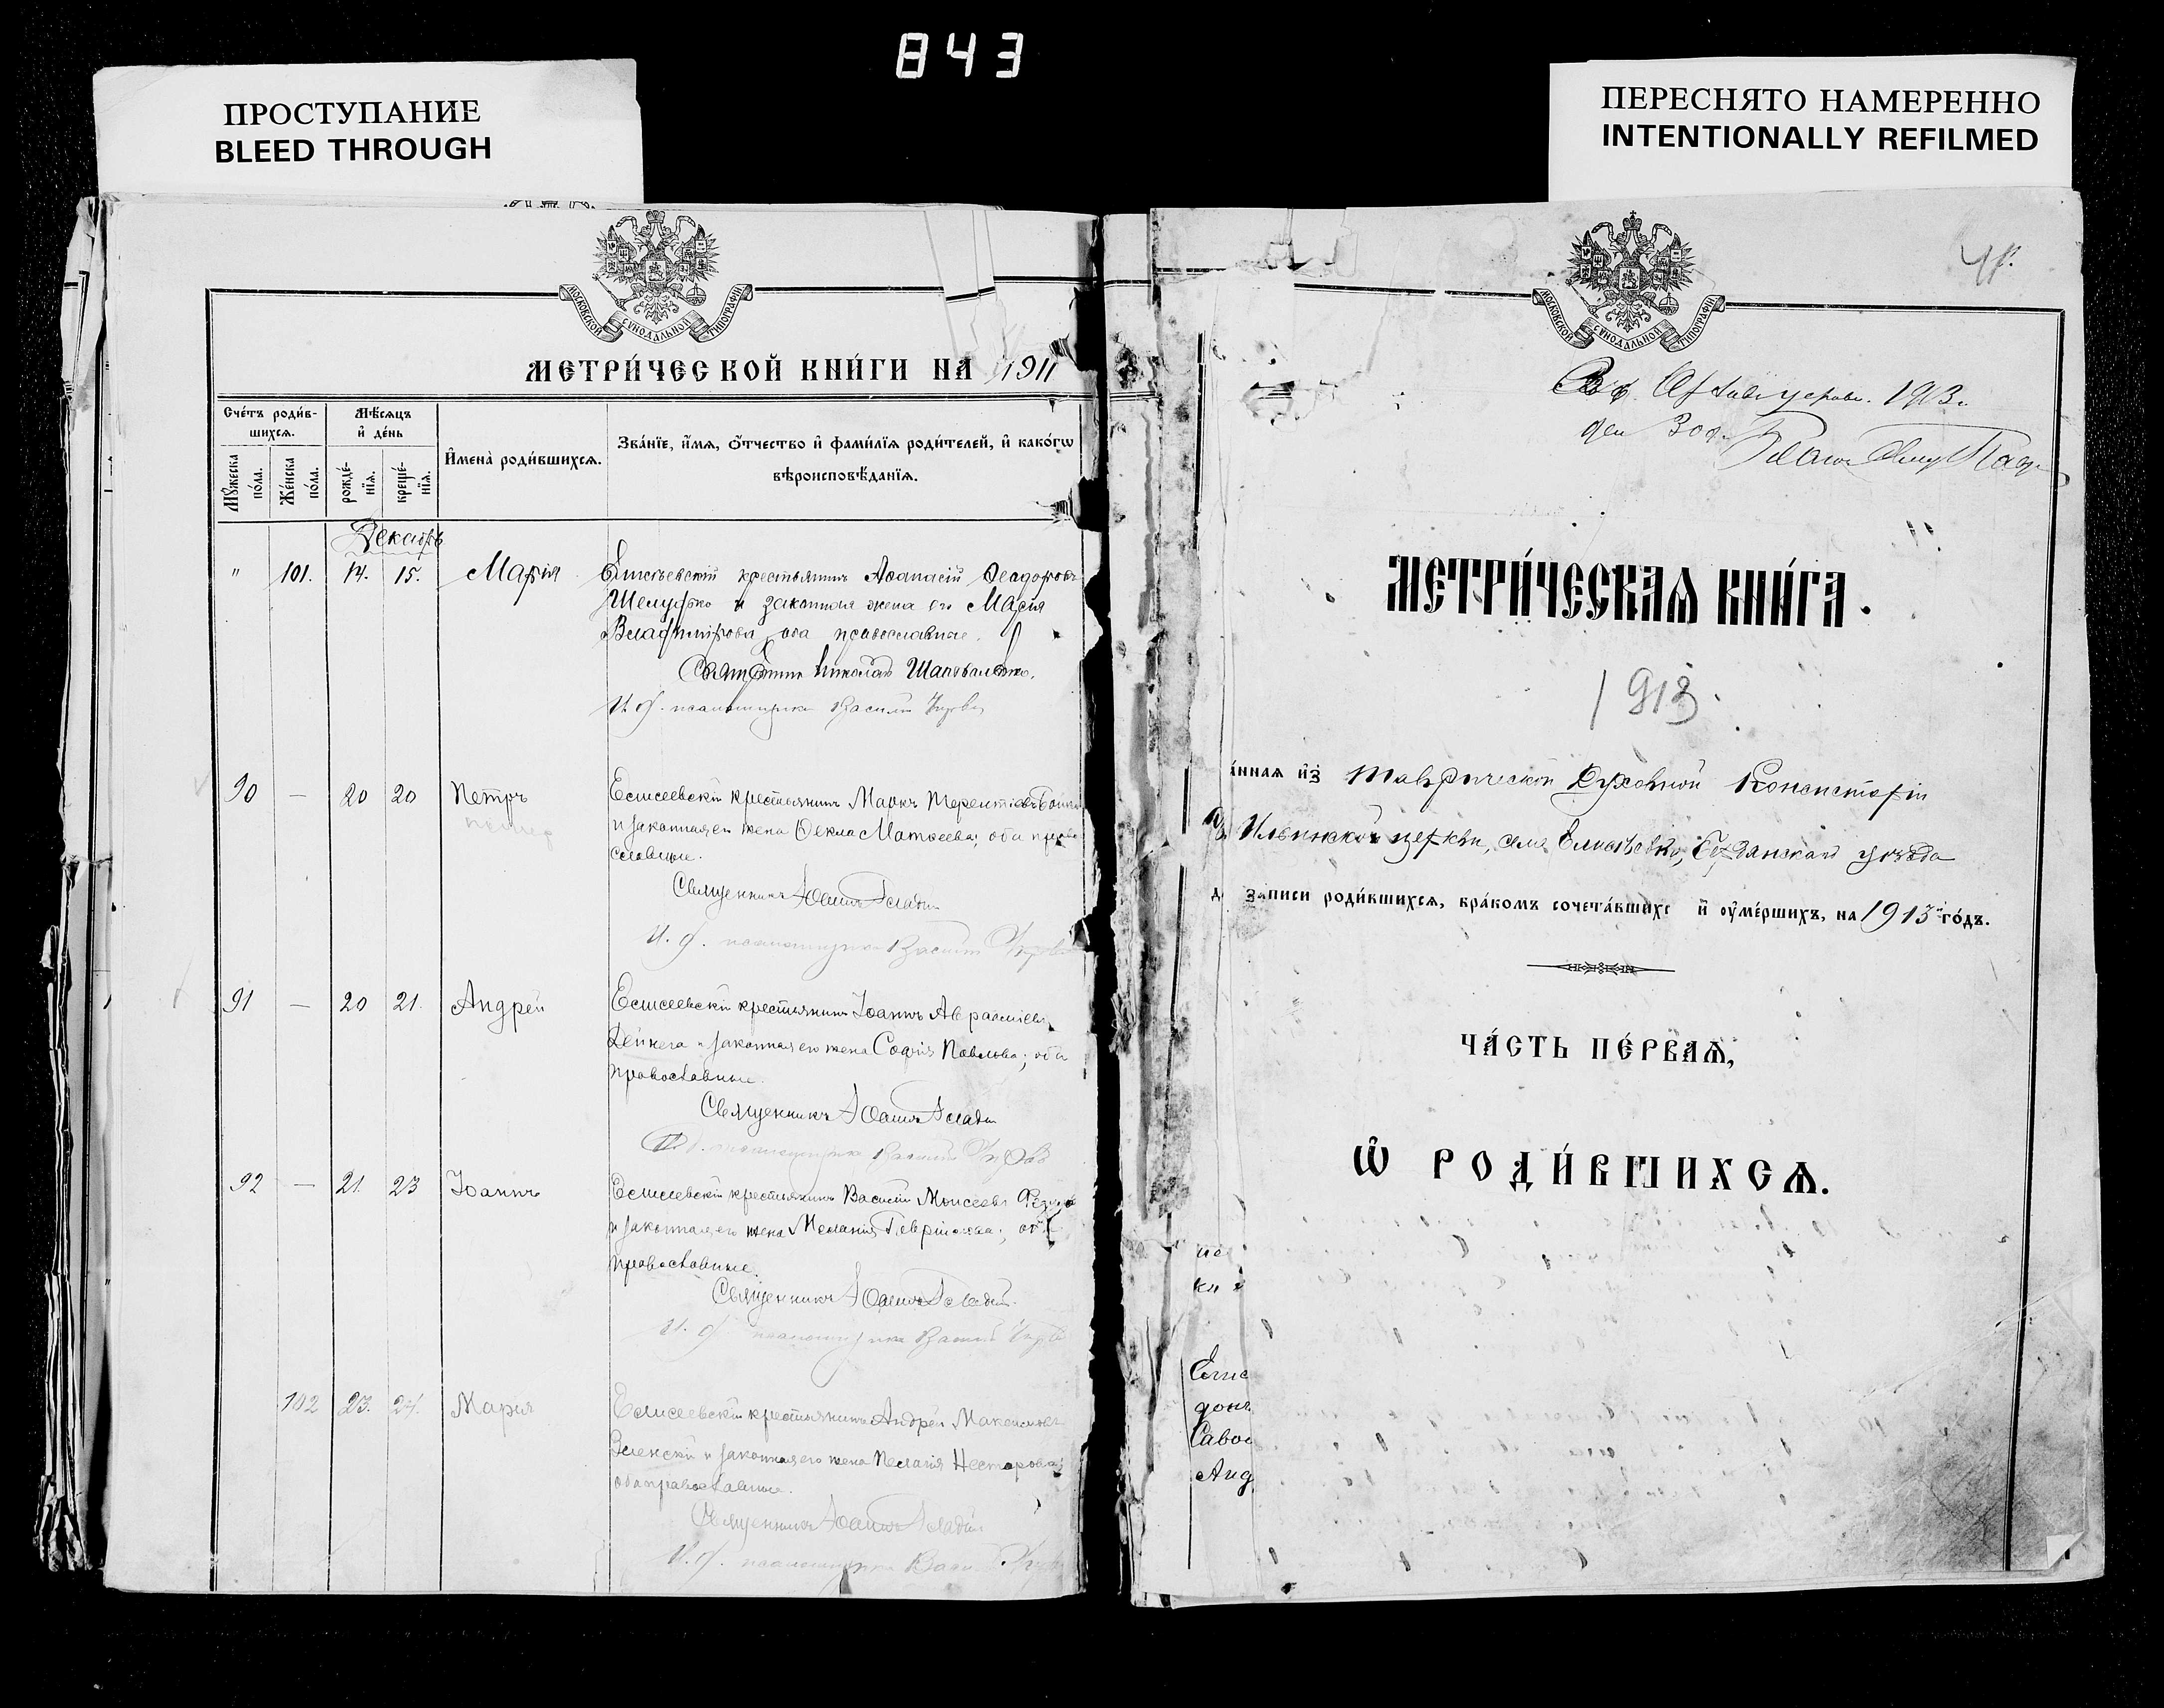 843
ПРОСТУПАНИЕ
BLEED THROUGH
ПЕРЕСНЯТО НАМЕРЕННО
INTENTIONALLY REFILMED
МОСКОВСКОЙ СѴНОДАЛЬНОЙ ТИПОГРАФІИ
МЕТРИ́ЧЕСКОЙ КНИ́ГИ НА 1911
Сче́тъ роди́в-
шихсѧ.
Мѣ́сѧцъ
и҆ де́нь
И҆мена̀ роди́вшихсѧ.
Зва́нїе, и҆́мѧ, ѻ҆́тчество и҆ фами́лїѧ роди́телей, и҆ како́гѡ
вѣроисповѣ́данїѧ.
Мꙋ́жеска по́ла.
Же́нска по́ла.
рожде́-нїѧ.
креще́-нїѧ.
Декабрь
" 101. 14. 15. Марія Елисѣевскій крестьянинъ Аѳанасій Ѳеодоровъ
Шелудько и законная жена его Марія
Владимірова, оба православные.
Священникъ Николай Шаповаленко.
И. д. псаломщика Василій
90 — 20 20 Петръ Елисеевскій крестьянинъ Маркъ Терентіевъ
и законная его жена Ѳекла Матвеева; оба право
славные.
Священникъ Іоаннъ Гладкій
И. д. псаломщика Василій
91 — 20 21. Андрей Елисеевскій крестьянинъ Іоаннъ Авраамiевъ
Дейнега и законная его жена Софія Павлова; оба
православные.
Священникъ Іоаннъ Гладкій
И. д. псаломщика Василій
92 — 21. 23 Іоаннъ Елисеевскій крестьянинъ Василій Моисеевъ
и законная его жена Меланія Гавріилова; оба
православные.
Священникъ Іоаннъ Гладкій
И. д. псаломщика Василій
102 23. 24. Марія Елисеевскій крестьянинъ Андрей Максимовъ
Зленскій и законная его жена Пелагія Нестерова;
оба православные.
Священникъ Іоаннъ Гладкій
И. д. псаломщика
МОСКОВСКОЙ СѴНОДАЛЬНОЙ ТИПОГРАФІИ
1913.
дня 30
МЕТРИ́ЧЕСКАѦ КНИ́ГА.
1913.
а́ннаѧ и҆з̾ Таврической Духовной Консисторіи
Ильинской церкви, села Елисѣевки, Бердянскаго уѣзда
д записи роди́вшихсѧ, бра́комъ сочета́вшихс и҆ ᲂу҆ме́ршихъ, на 1913й го́дъ.
ЧА́СТЬ ПЕ́РВАѦ,
Ѡ҆ РОДИ́ВШИХСѦ.
ки
Елис
донъ
Савос
Анд